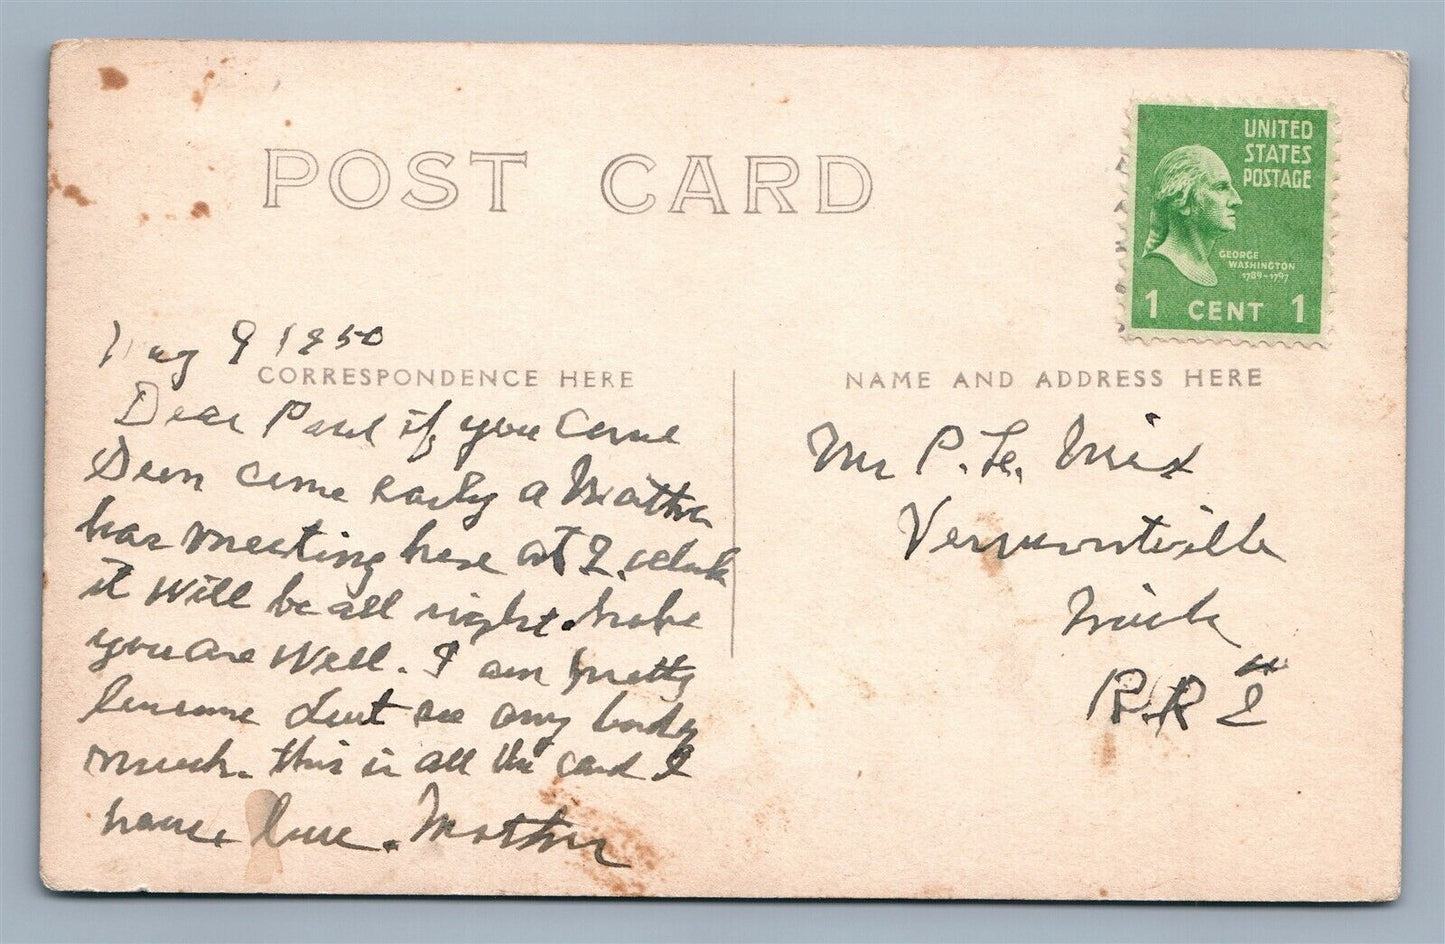 POST CARD
UNITED
STATES
POSTAGE
GEORGE
WASHINGTON
1789-1797
1 CENT 1
Aug 9 1950
CORRESPONDENCE HERE
NAME AND ADDRESS HERE
Dear Paul if you come
come early a
has meeting here at 2
it will be all right. hope
you are well. I am pretty
lonesome dont see any body
much. this is all the card I
have. love. Mother
Mr P. L. Mix
Vermontville
Mich
R.R 2